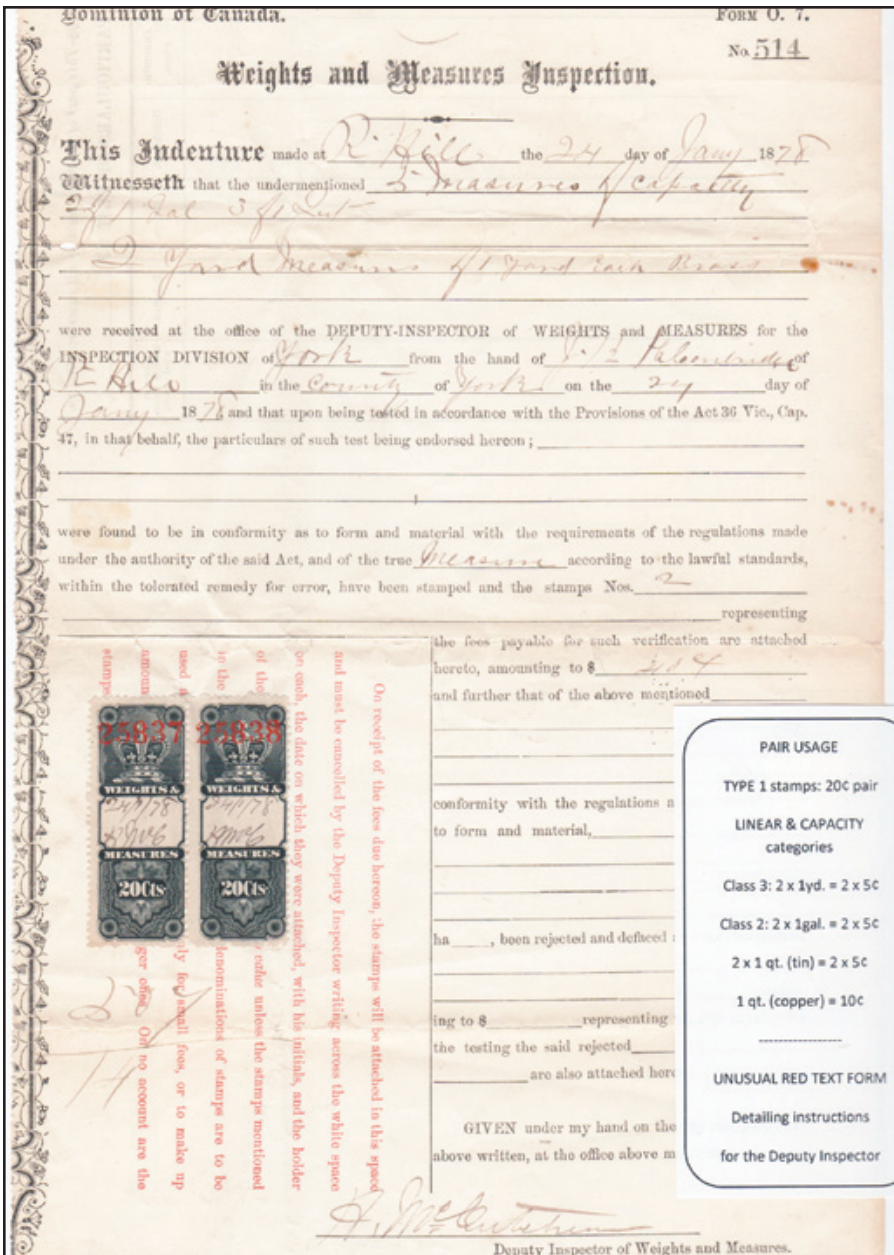 Dominion of Canada.
FORM O. 7.
No. 514
Weights and Measures Inspection.
This Indenture made at R. Hill the 24 day of Jany 1878
Witnesseth that the undermentioned 5 Measures of capacity
2 Yard Measures of 1 Yard Each Brass
were received at the office of the DEPUTY-INSPECTOR of WEIGHTS and MEASURES for the
INSPECTION DIVISION of York from the hand of of
R Hill in the County of York on the 24 day of
Jany 1878 and that upon being tested in accordance with the Provisions of the Act 36 Vic., Cap.
47, in that behalf, the particulars of such test being endorsed hereon ;
were found to be in conformity as to form and material with the requirements of the regulations made
under the authority of the said Act, and of the true Measure according to the lawful standards,
within the tolerated remedy for error, have been stamped and the stamps Nos. 2
representing
the fees payable for such verification are attached
hereto, amounting to $
and further that of the above mentioned
conformity with the regulations a
to form and material,
ha , been rejected and defaced
ing to $ representing
the testing the said rejected
are also attached here
GIVEN under my hand on the
above written, at the office above m
Deputy Inspector of Weights and Measures.
On receipt of the fees due hereon, the stamps will be attached in this space
and must be cancelled by the Deputy Inspector writing across the white space
on each, the date on which they were attached, with his initials, and the holder
of the value unless the stamps mentioned
in the denominations of stamps are to be
used only for small fees, or to make up
amoun ger ones. On no account are the
stamps
25837
WEIGHTS &
24/1/78
MEASURES
20Cts.
25838
WEIGHTS &
24/1/78
MEASURES
20Cts.
PAIR USAGE
TYPE 1 stamps: 20¢ pair
LINEAR & CAPACITY
categories
Class 3: 2 x 1yd. = 2 x 5¢
Class 2: 2 x 1gal. = 2 x 5¢
2 x 1 qt. (tin) = 2 x 5¢
1 qt. (copper) = 10¢
----------------
UNUSUAL RED TEXT FORM
Detailing instructions
for the Deputy Inspector